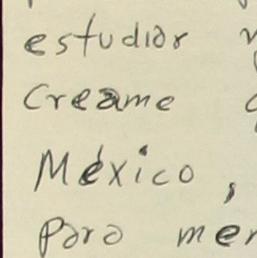 estudiar
Creame
México,
para mer